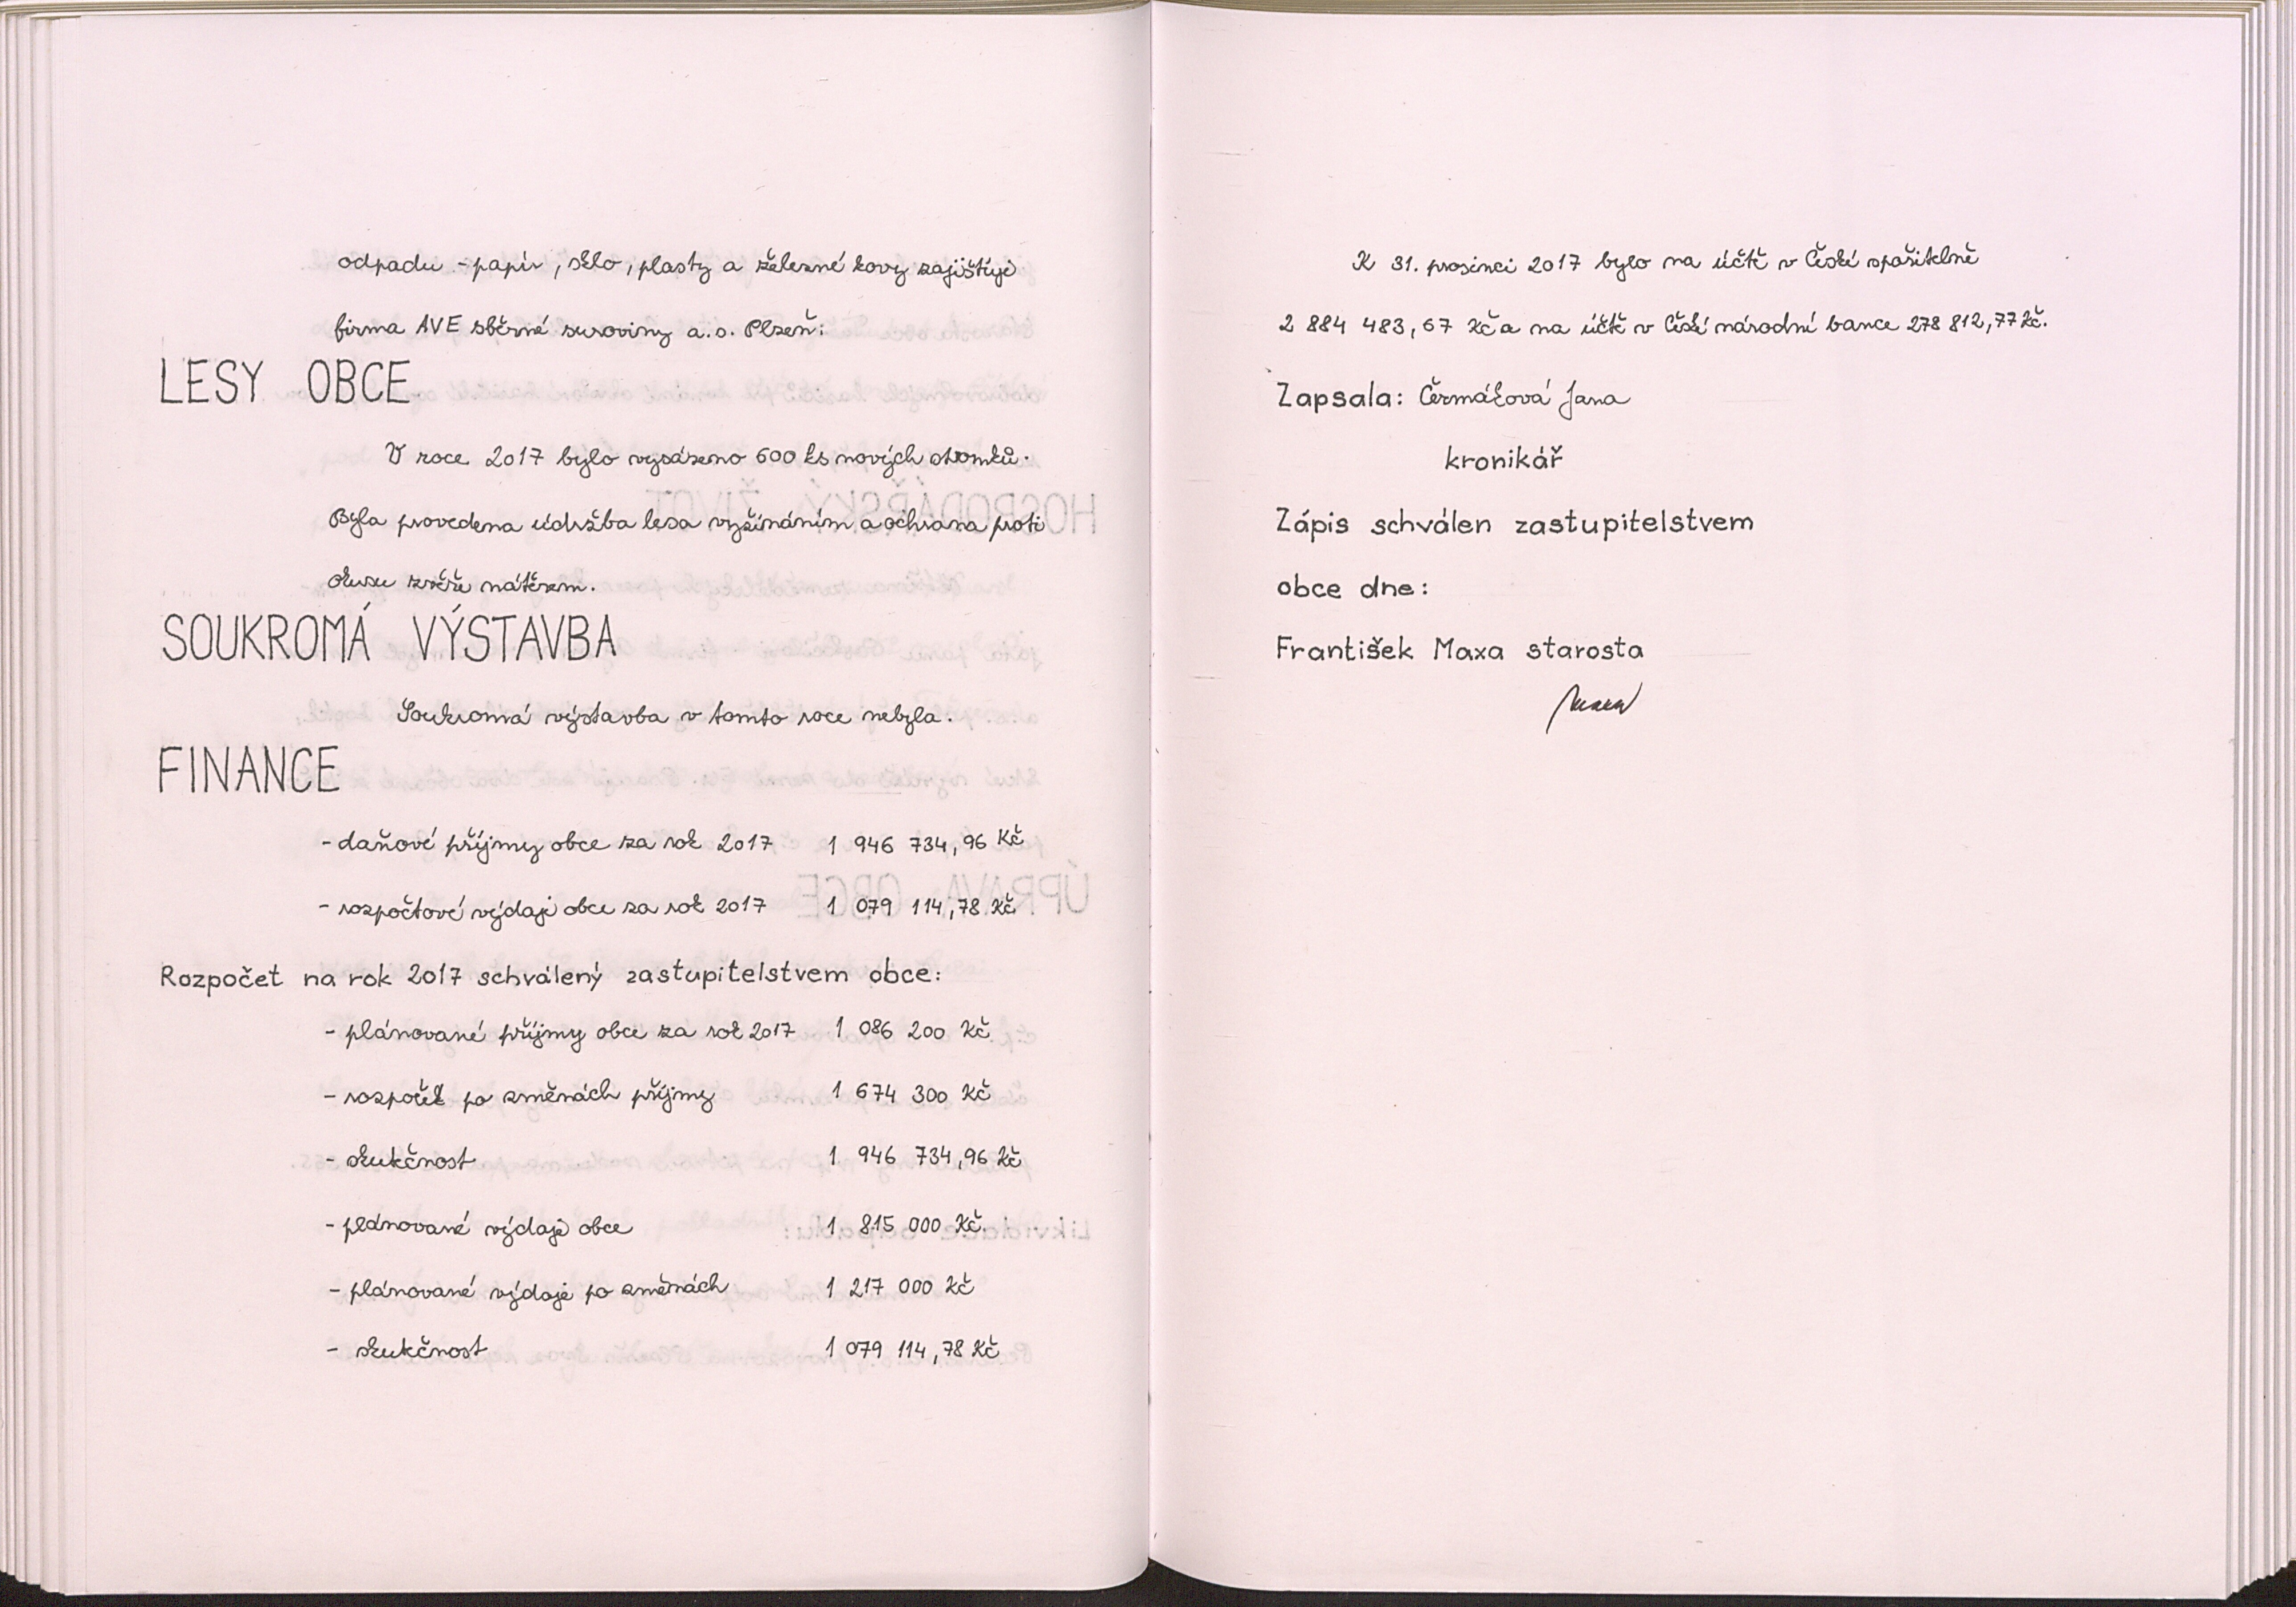 odpadu - papír, sklo, plasty a železné kovy zajištují
firma AVE sběrné suroviny a.s. Plzeň:
LESY OBCE
V roce 2017 bylo vysázeno 600 ks nových stromků.
Byla provedena údržba lesa vyžínáním a ochrana proti
okusu zvěře nátěrem.
SOUKROMÁ VÝSTAVBA
Soukromá výstavba v tomto roce nebyla.
FINANCE
- daňové příjmy obce za rok 2017 1 946 734,96 Kč
- rozpočtové výdaje obce za rok 2017 1 079 114,78 Kč
Rozpočet na rok 2017 schválený zastupitelstvem obce:
- plánované příjmy obce za rok 2017 1 086 200 Kč
- rozpočet po změnách příjmy 1 674 300 Kč
- skutečnost 1 946 734,96 Kč
- plánované výdaje obce 1 815 000 Kč
- plánované výdaje po změnách 1 217 000 Kč
- skutečnost 1 079 114,78 Kč
K 31. prosinci 2017 bylo na účtě v České spořitelně
2 884 483,67 Kč a na účtě v České národní bance 278 812,77 Kč.
Zapsala: Čermáková Jana
kronikář
Zápis schválen zastupitelstvem
obce dne:
František Maxa starosta
Maxa